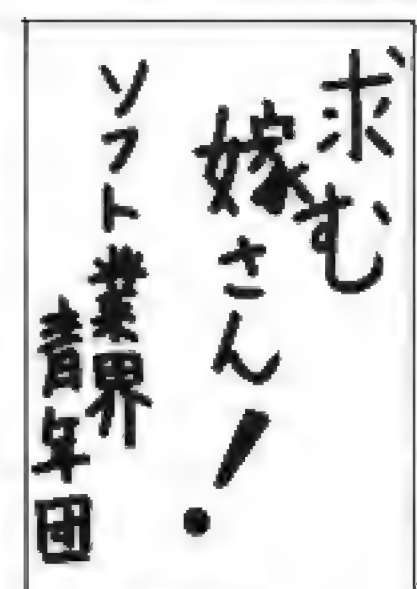 求む
嫁さん！
ソフト業界
青年団